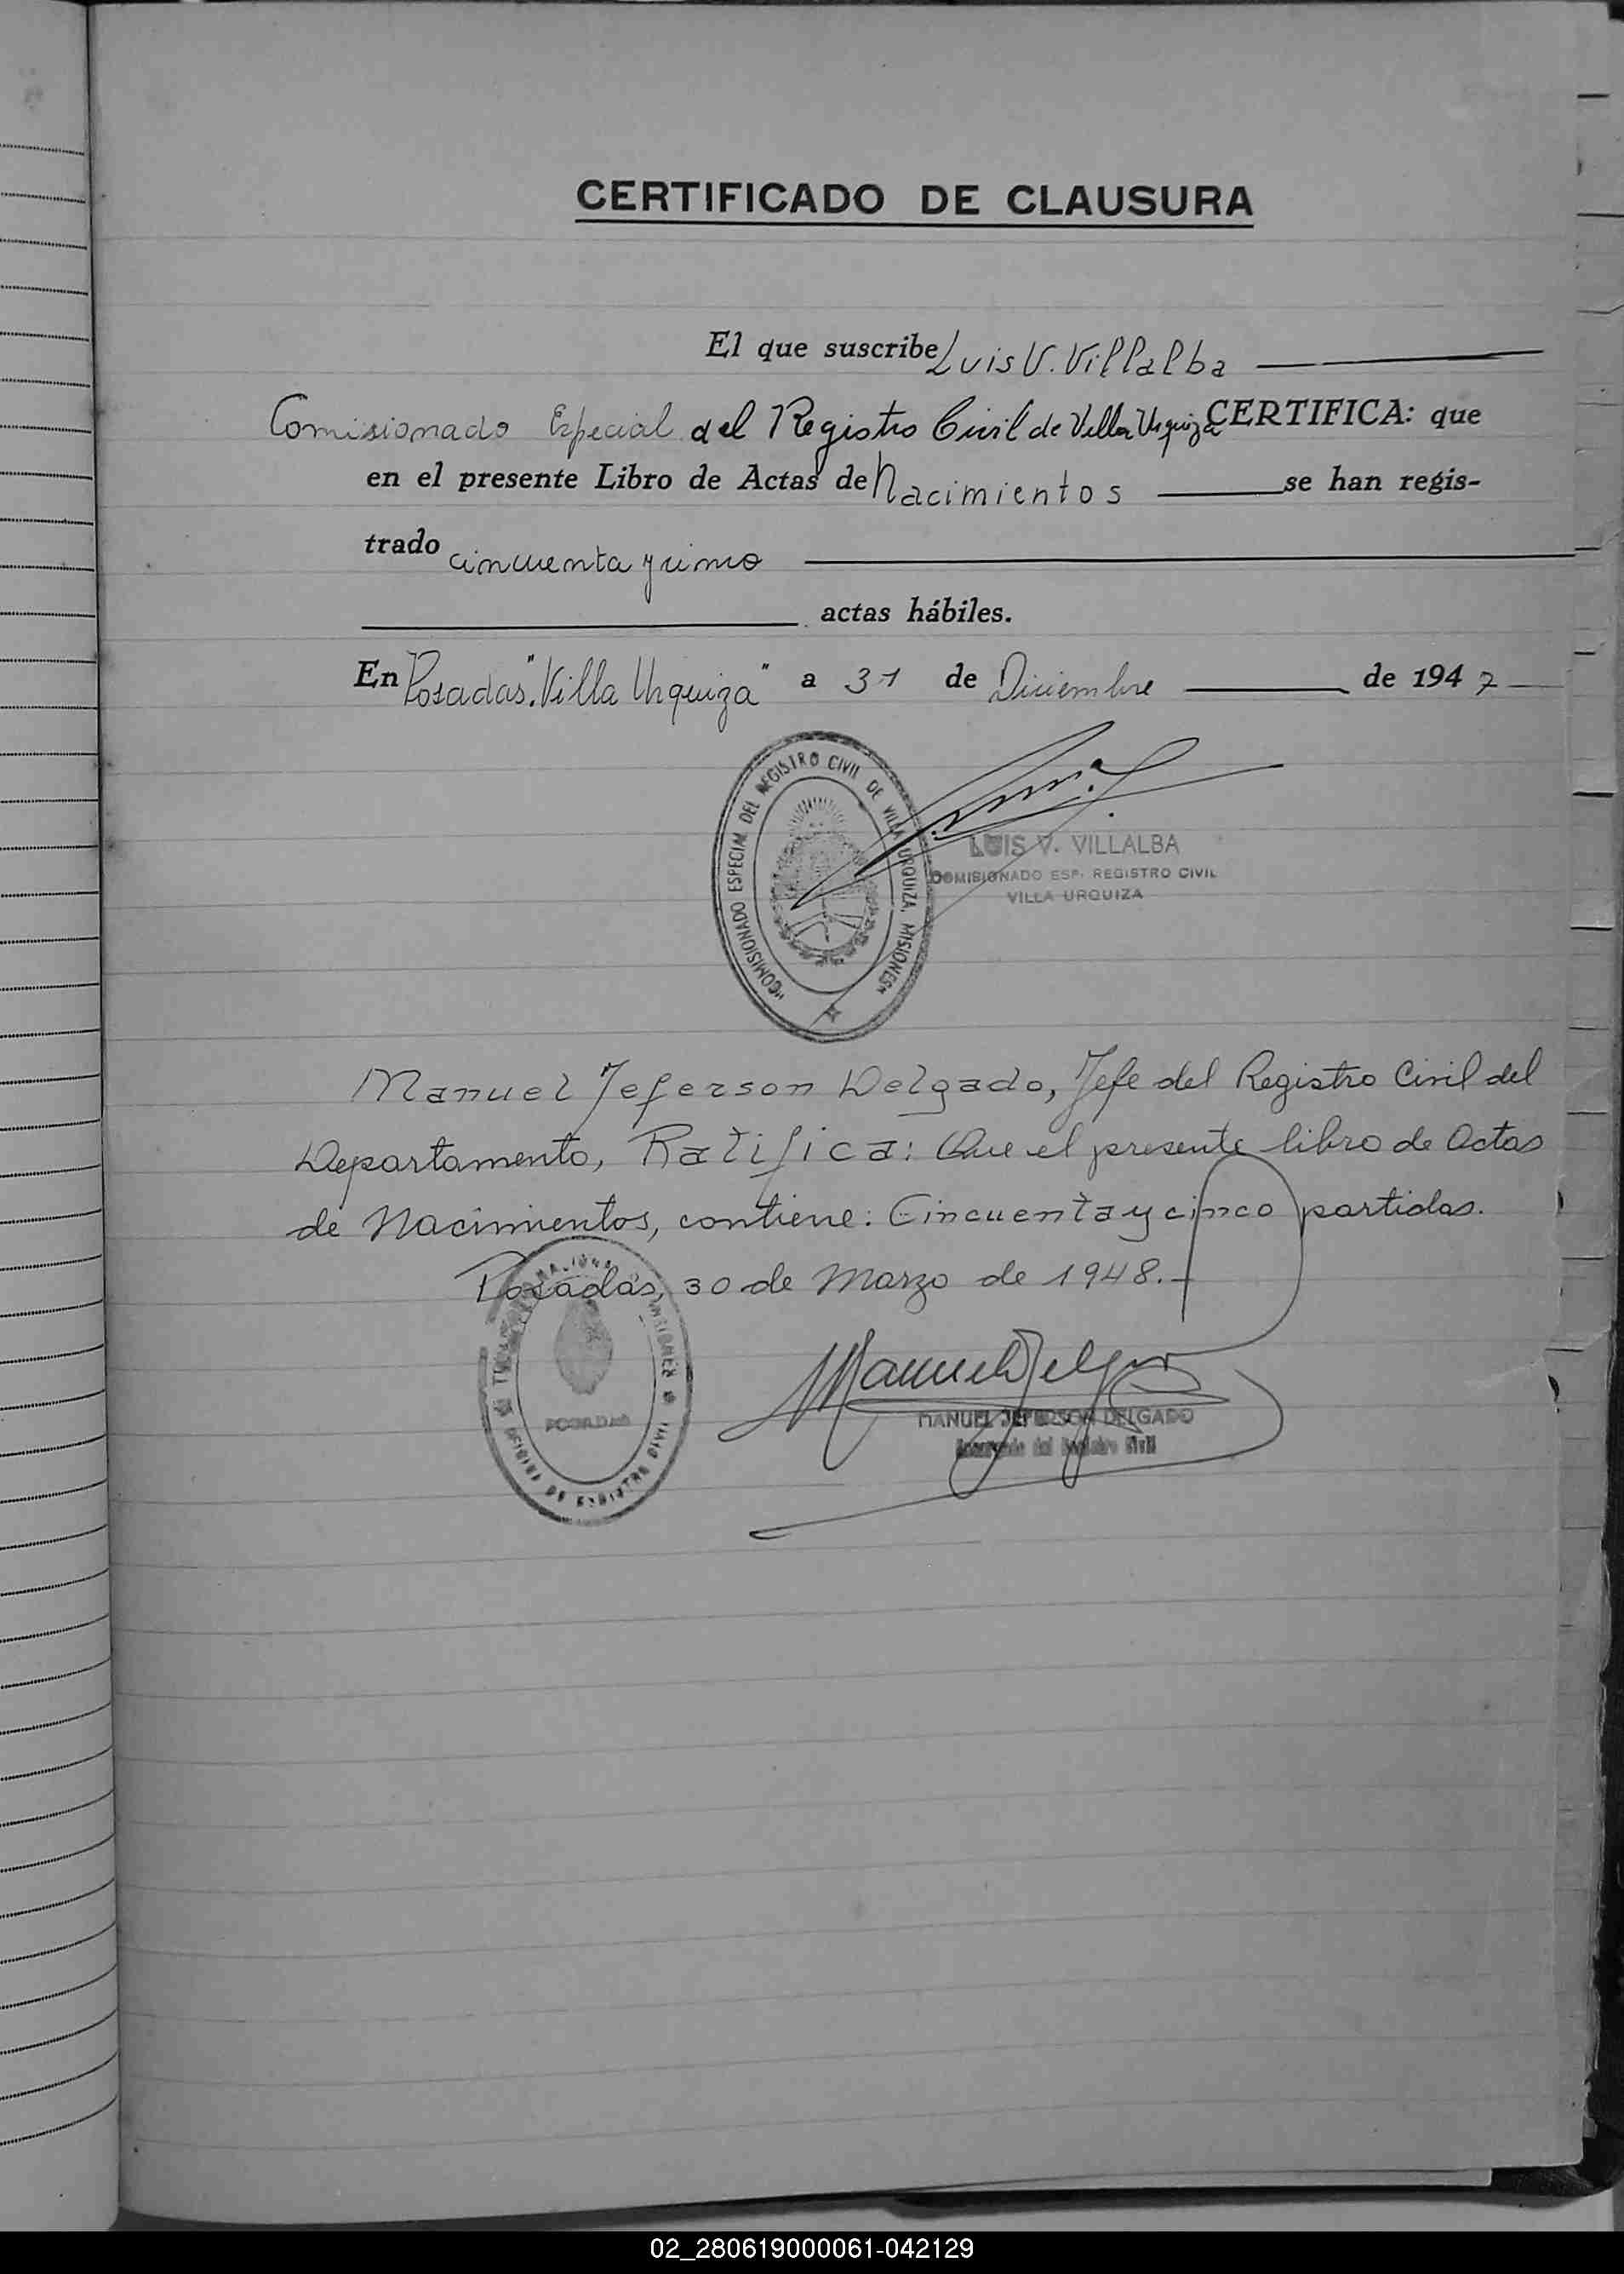 CERTIFICADO DE CLAUSURA
El que suscribe Luis V. Villalba
Comisionado Especial del Registro Civil de Villa Urquiza CERTIFICA: que
en el presente Libro de Actas de Nacimientos se han regis-
trado cincuenta y cinco
actas hábiles.
En Posadas. "Villa Urquiza" a 31 de Diciembre de 1947
"COMISIONADO ESPECIAL DEL REGISTRO CIVIL DE VILLA URQUIZA. MISIONES"
LUIS V. VILLALBA
COMISIONADO ESP. REGISTRO CIVIL
VILLA URQUIZA
Manuel Jeferson Delgado, Jefe del Registro Civil del
Departamento, Ratifica: Que el presente libro de Actas
de Nacimientos, contiene: Cincuenta y cinco partidas.
Posadas, 30 de Marzo de 1948.-
MISIONES
OFICINA DE REGISTRO CIVIL
POSADAS
Manuel Delgado
MANUEL JEFERSON DELGADO
del Registro Civil
02_280619000061-042129